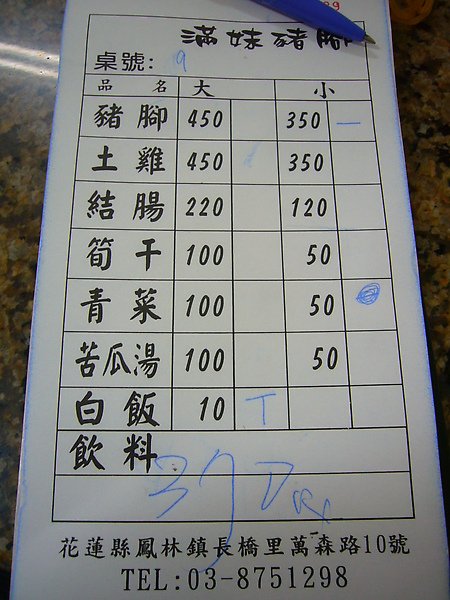 滿妹豬腳
桌號: 9
品名 大 小
豬腳 450 350 一
土雞 450 350
結腸 220 120
筍干 100 50
青菜 100 50
苦瓜湯 100 50
白飯 10 T
飲料
花蓮縣鳳林鎮長橋里萬森路10號
TEL:03-8751298